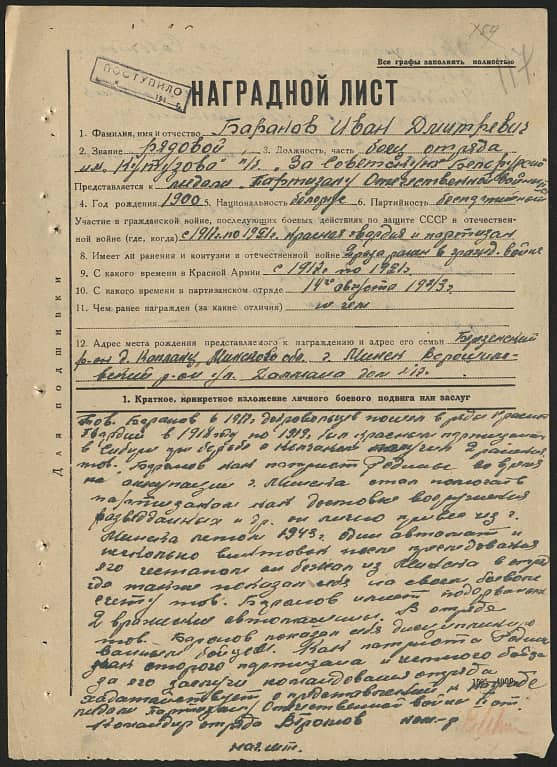 754
117.
Все графы заполнять полностью
ПОСТУПИЛО
194 г.
НАГРАДНОЙ ЛИСТ
1. Фамилия, имя и отчество Баранов Иван Дмитревич
2. Звание рядовой 3. Должность, часть боец отряда
им. Кутузова п/г. „За Советскую Белорусь
Представляется к медали „Партизану Отечественной Войны"
4. Год рождения 1900 5. Национальность белорус 6. Партийность беспартийный
Участие в гражданской войне, последующих боевых действиях по защите СССР и отечествен-
ной войне (где, когда) с 1917 г. по 1921 г. Красная гвардия и партизан
8. Имеет ли ранения и контузии в отечественной войне 2 раза ранен в гражд. войне
9. С какого времени в Красной Армии с 1917 г по 1921 г.
10. С какого времени в партизанском отряде 14го августа 1943 г.
11. Чем ранее награжден (за какие отличия) ни чем
12. Адрес места рождения представляемого к награждению и адрес его семьи
р-он д. Минской обл. г. Минск Ворошилов-
ский р-он ул. дом
Для подшивки
1. Краткое, конкретное изложение личного боевого подвига или заслуг
Тов. Баранов в 1917 г. добровольцем пошел в ряды Красной
Гвардии в 1918 году по 1919 г. был красным партизаном
в Сибири при борьбе с получил 2 ранения
тов. Баранов как патриот Родины во время
оккупации г. Минска стал помогать
партизанам как доставке вооружения
и др. он лично привез из г.
Минска летом 1943 г. один автомат и
несколько винтовок после преследования
его гестапом он бежал из Минска в отряд
где также показал себя на своем боевом
счету тов. Баранов имеет подорванных
2 вражеских автомашины. В отряде
тов. Баранов показал себя дисциплиниро-
ванным бойцом. Как патриота Родины
как старого партизана и честного бойца
за его заслуги командования отряда
ходатайствует о представлении к награде
медали Партизану Отечественной войны
Командир отряда Воронов